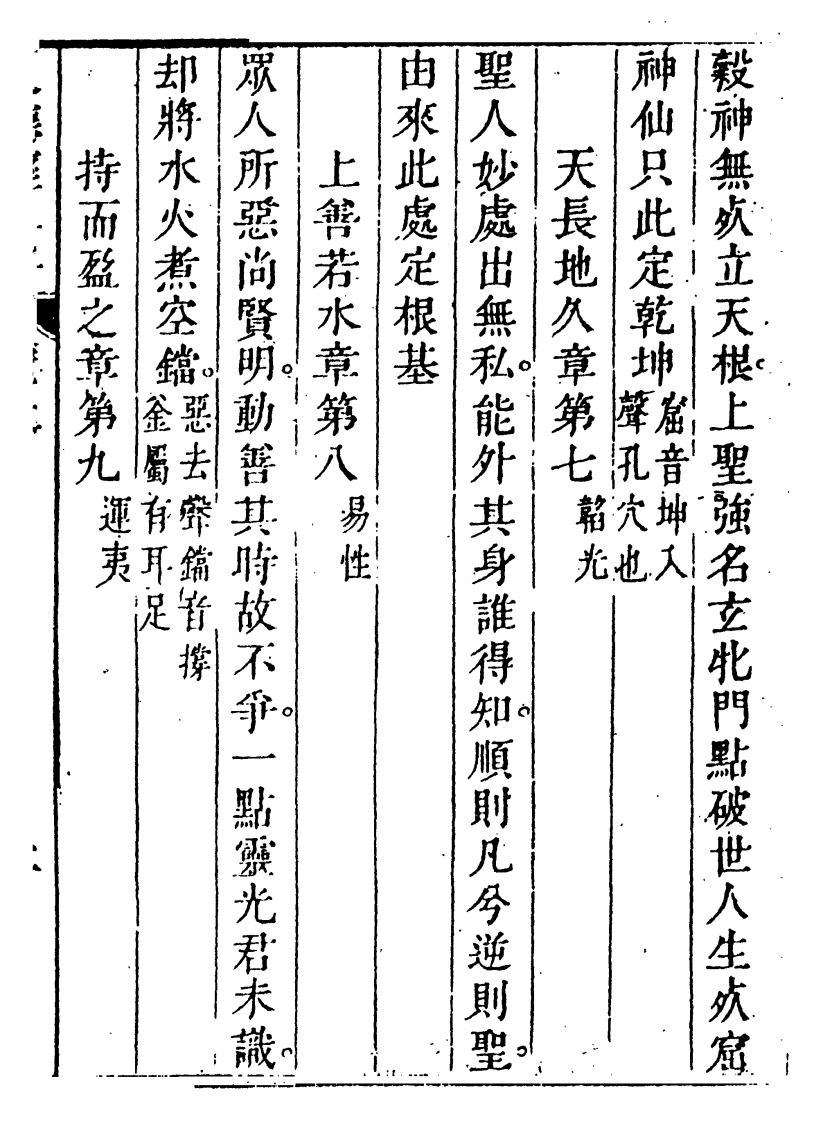 穀神無死立天根。上聖強名玄牝門點破世人生死窟
神仙只此定乾坤窟音坤入聲孔穴也
天長地久章第七 韜光
聖人妙處出無私。能外其身誰得知。順則凡兮逆則聖。
由來此處定根基
上善若水章第八 易性
眾人所惡尚賢明。動善其時故不爭。一點靈光君未識。
却將水火煮空鐺。惡去聲鐺音撐釜屬有耳足
持而盈之章第九 運夷